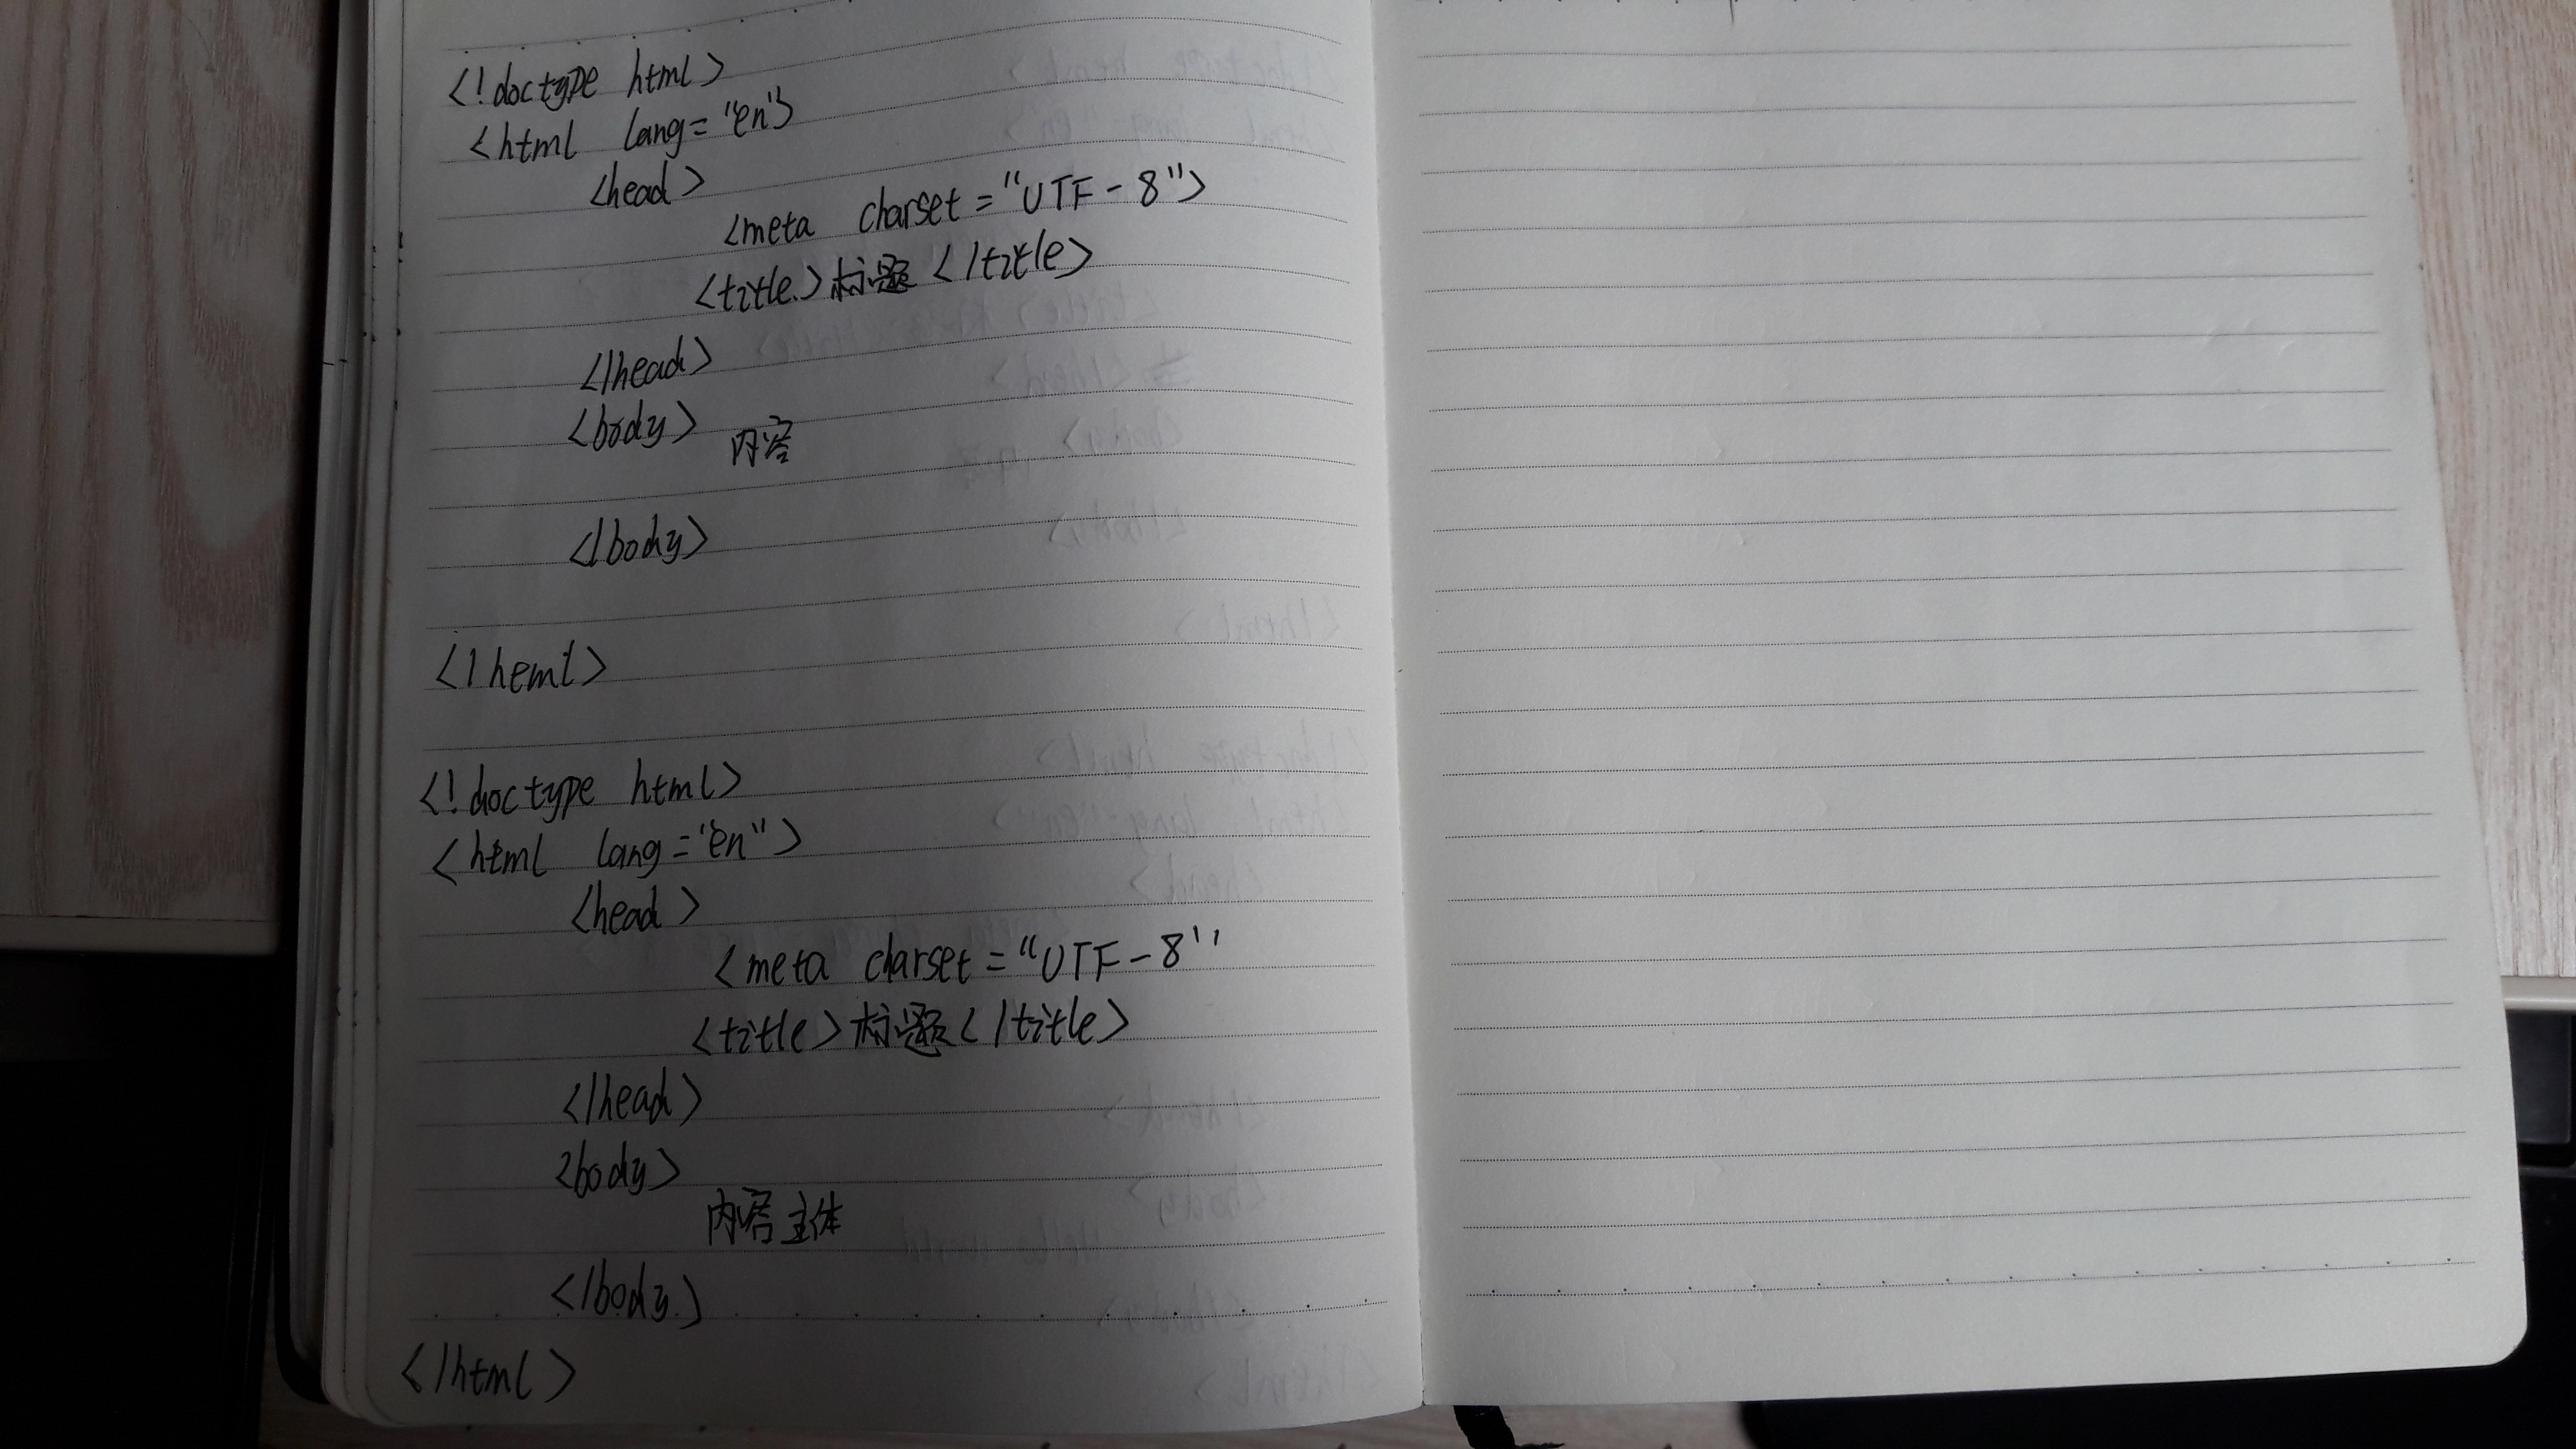 <!doctype html>
<html lang="en">
<head>
<meta charset="UTF-8">
<title>标题</title>
</head>
<body>
内容
</body>
</heml>
<!doctype html>
<html lang="en">
<head>
<meta charset="UTF-8"
<title>标题</title>
</head>
<body>
内容主体
</body>
</html>